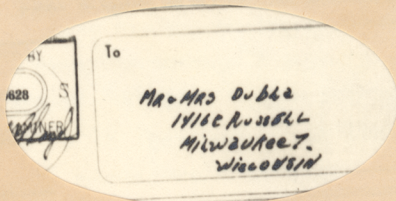 BY
To
628 S
MR & MRS DUBLE
1416 E RUSSELL
MILWAUKEE 7.
WISCONSIN